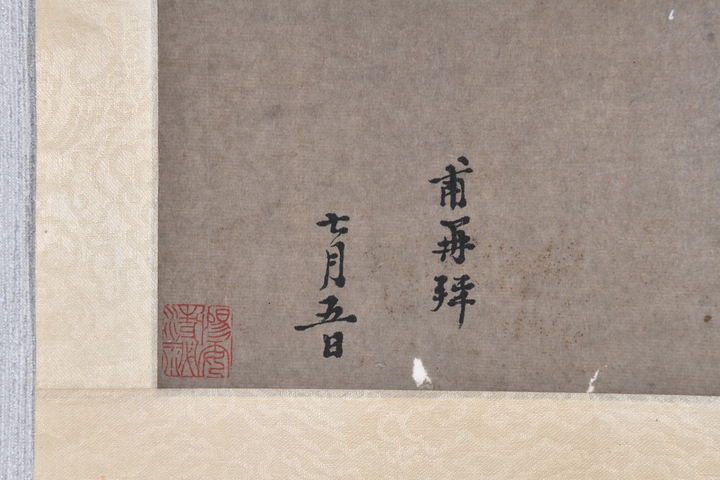 甫再拜
七月五日